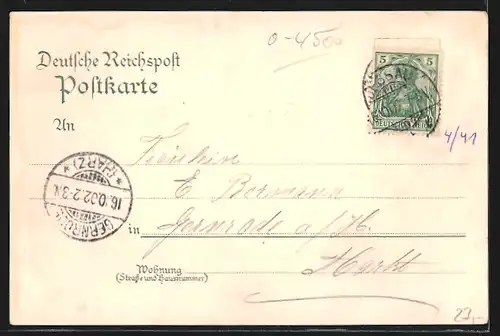 0-4500
Deutsche Reichspost
Postkarte
5
5
DESSAU
DEUTSCHES REICH
An
4/41
Fräulein
(HARZ)
E Bormann
16.10.02.2-3N
GERNRODE
in Gernrode a/H.
Markt
Wohnung
(Straße und Hausnummer)
23,-